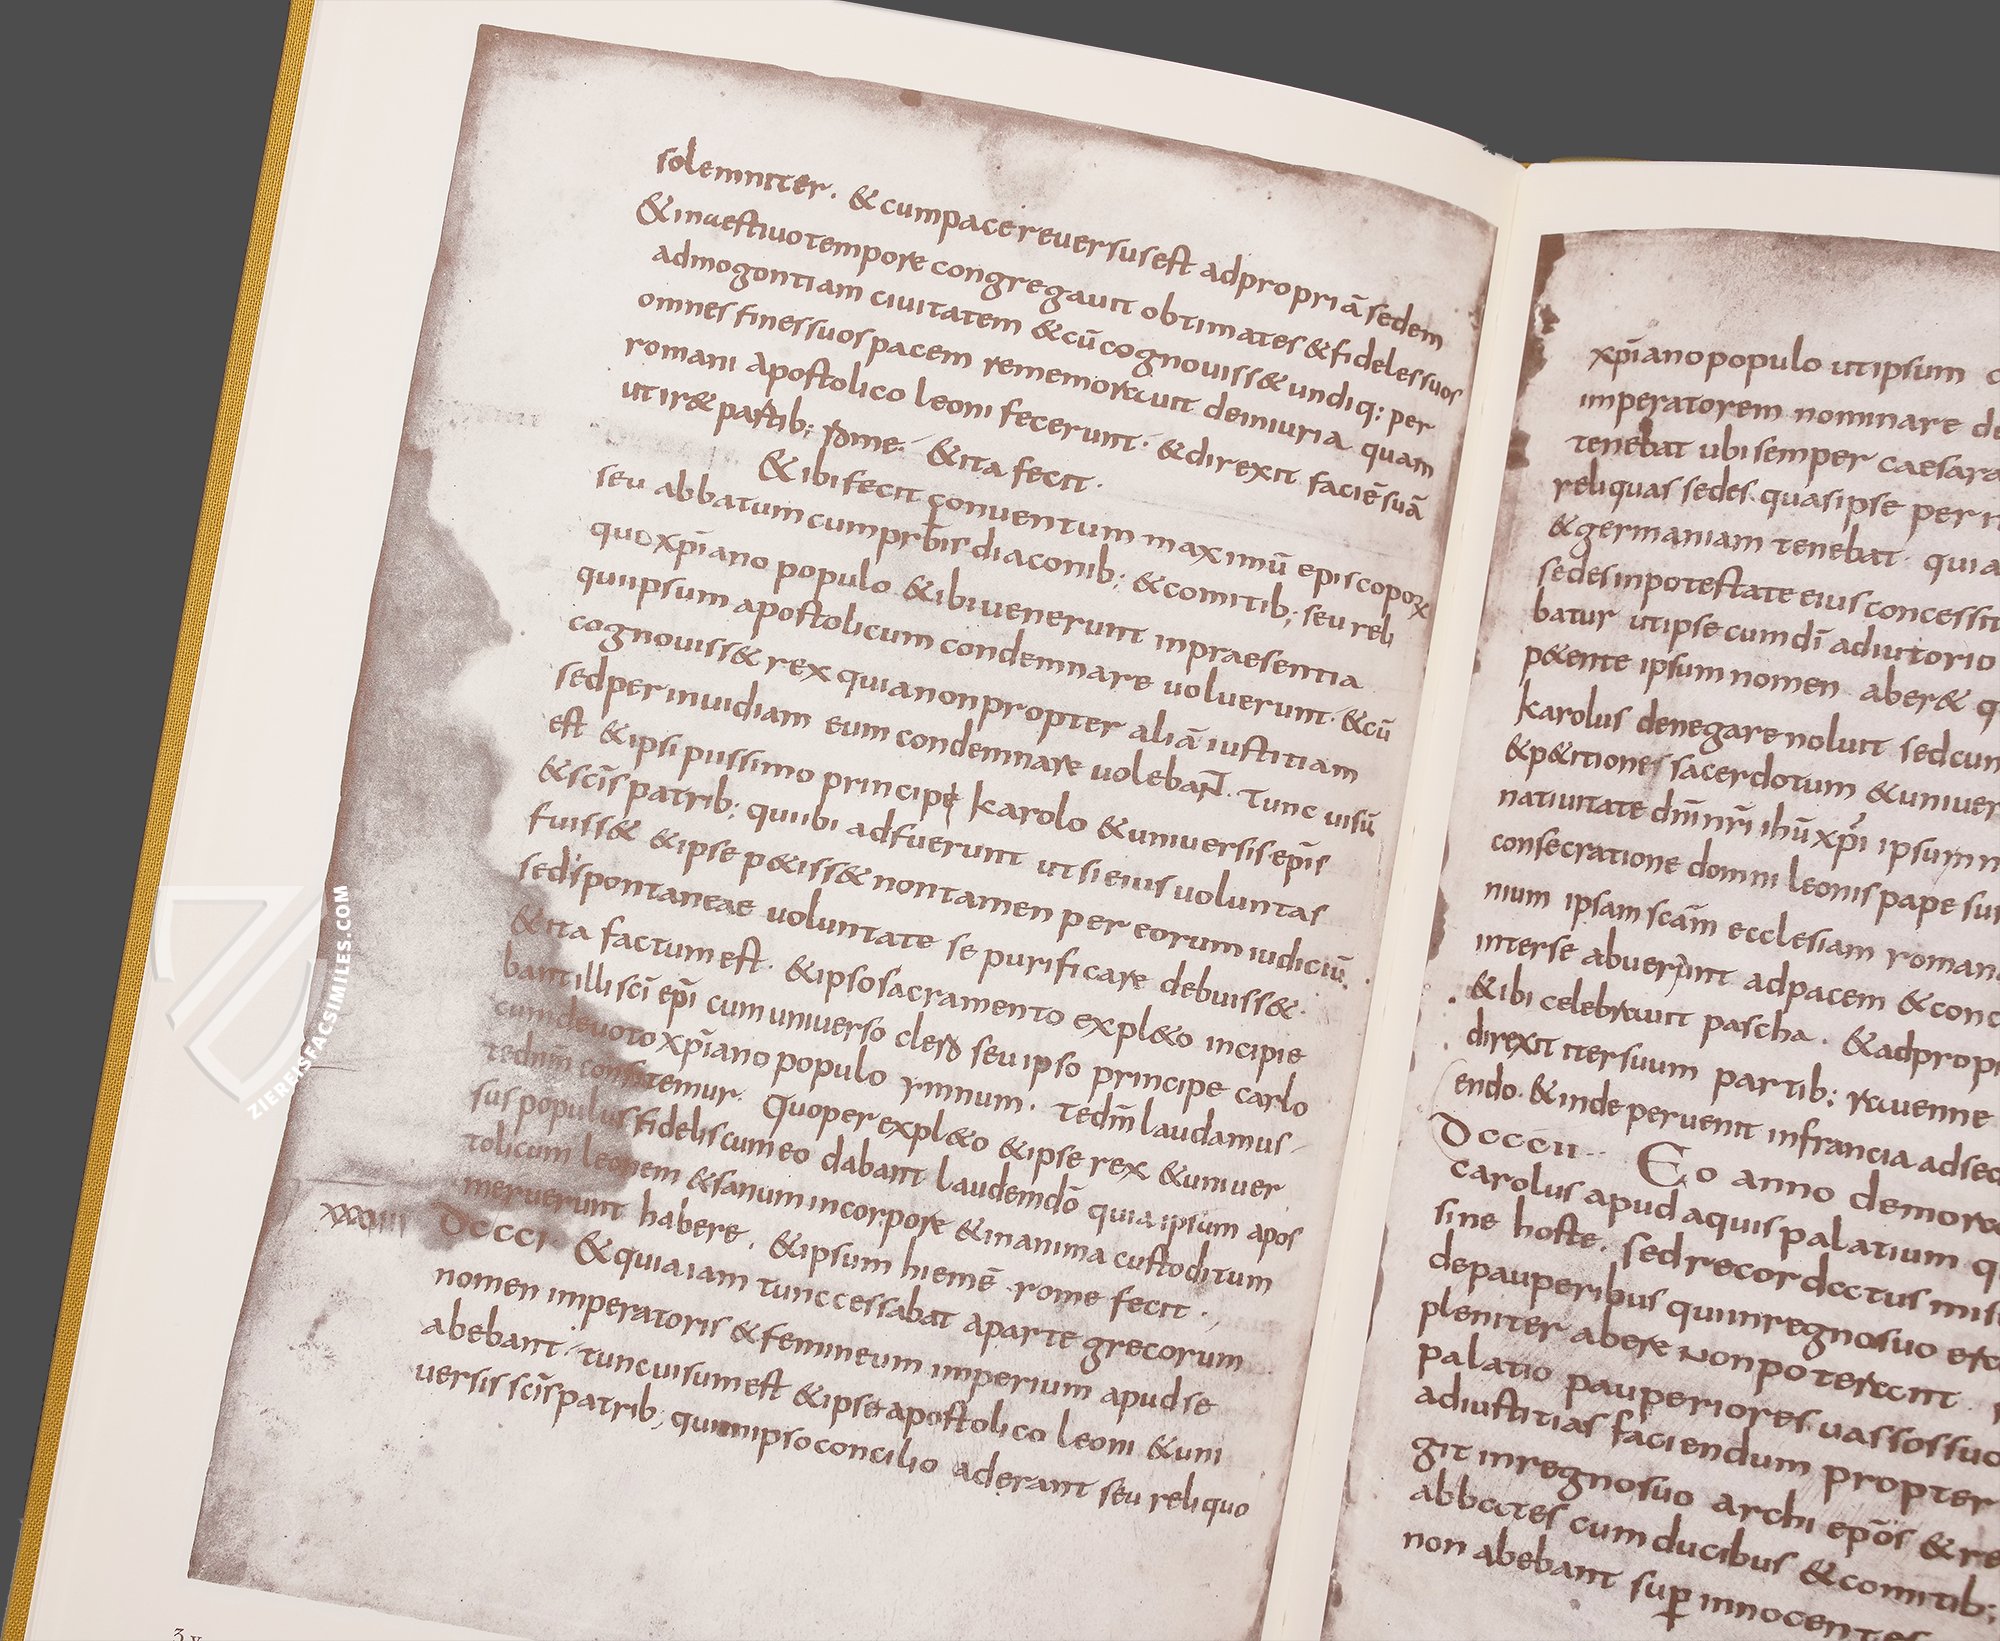 solemniter. &cumpace reuersusest adpropriā sedem
&inuestiuotempore congregauit obtimates &fideles suos
admogontiam ciuitatem &cū cognouiss& undiq: per
omnes fines suos pacem rememorauit deiniuria quam
romani apostolico leoni fecerunt. &direxit faciē suā
utir& partib; rome. &ita fecit.
&ibi fecit conuentum maximū episcopoꝝ
seu abbatum cum prbīs diaconib; &comitib; seu reli
quo xpīano populo &ibi uenerunt inpraesentia
qui ipsum apostolicum condemnare uoluerunt. &cū
cognouiss& rex quia non propter aliā iustitiam
sed per inuidiam eum condemnare uolebant. Tunc uisū
est &ipsi piissimo principe karolo &uniuersis epīs
&scīs patrib; qui ibi adfuerunt ut si eius uoluntas
fuiss& &ipse p&iss& non tamen per eorum iudiciū.
sed spontaneae uoluntate se purificare debuiss&.
&ita factum est. &ipso sacramento expl&o incipie
bant illi scī epī cum uniuerso clero seu ipso principe carlo
cum deuoto xpīano populo ymnum. tedm̄ laudamus
tednm̄ confitemur. Quo per expl&o &ipse rex &uniuer
sus populus fidelis cum eo dabant laudem dō quia ipsum apos
tolicum leonem &sanum incorpore &inanima custoditum
meruerunt habere. &ipsum hiemē rome fecit.
xxxiiii DCCCI. &quia iam tunc cessabat aparte grecorum
nomen imperatoris &femineum imperium apud se
abebant. tunc uisum est &ipse apostolico leoni &uni
uersis scīs patrib; qui in ipso concilio aderant seu reliquo
3 v
xpīano populo ut ipsum
imperatorem nominare
tenebat ubi semper caesara
reliquas sedes quas ipse per
&germaniam tenebat. quia
sedes inpotestate eius concessit
batur ut ipse cum dī adiutorio
p&ente ipsum nomen aber&
karolus denegare noluit sed cum
&p&itiones sacerdotum &uniuer
natiuitate dnī nrī ihū xpī ipsum
consecratione domni leonis pape
nium ipsam scām ecclesiam roman
inter se abuerunt ad pacem &conc
&ibi celebrauit pascha. &adpropr
direxit iter suum partib; rauenne
endo. &inde peruenit infrancia adsed
DCCCII. Eo anno demora
carolus apud aquis palatium
sine hoste. sed recordatus mis
de pauperibus qui inregno suo
pleniter abere non poterant.
palatio pauperiores uassos suo
ad iustitias faciendum propter
git inregno suo archi epōs &re
abbates cum ducibus &comitib;
non abebant sup innocentes
ZIEREISFACSIMILES.COM